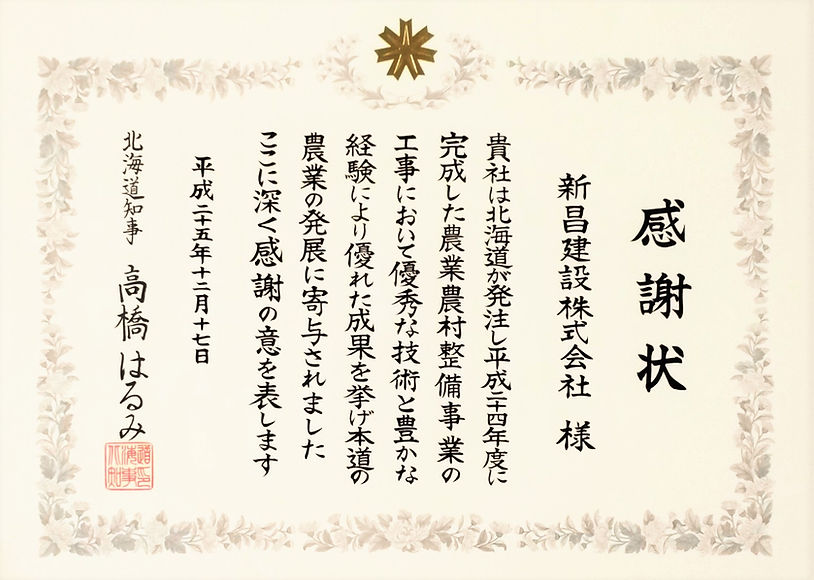 感謝状
新昌建設株式会社 様
貴社は北海道が発注し平成二十四年度に
完成した農業農村整備事業の
工事において優秀な技術と豊かな
経験により優れた成果を挙げ本道の
農業の発展に寄与されました
ここに深く感謝の意を表します
平成二十五年十二月十七日
北海道知事 高橋はるみ